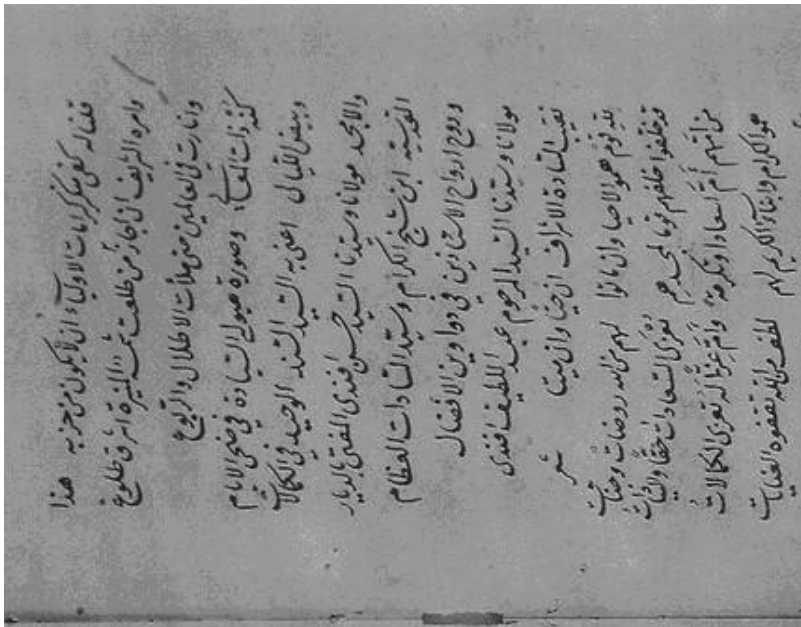 قلنا له كفى منكر كرامات الاولياء ان لا يكون من حزبه هذا
وامره الشريف ان اجاز من طلعت شمسه المنيرة اشرق طلوع
وانارت في العالمين حتى ملأت الاطلال والربوع
كنه ذات وصورة هيولى السيادة في ضحى الايام
وبيض الليالي اعني به السيد السند الوحيد في الكمالات
والامجد مولانا وسيدنا السيد حسن افندى المفتى بالديار
القدسية ابن شيخ الكرام وسيد السادات العظام
وروح ارواح الاستاذين في دواوين الافضال
مولانا وسيدنا السيد المرحوم عبد اللطيف افندى
نقيب السادة الاشراف ان حيا وان ميتا شعر
لله قوم همو الاحيا وان ماتوا لهم من الله روضات وجنات
قد خلفوا خلفهم قوما لمجدهم تعزى السعادات حقا والسيادات
من امهم ام اسعادا ومكرمة وام عزا له تعزى الكمالات
همو الكرام وابناء الكريم لهم لطف من الله تقفوه العنايات